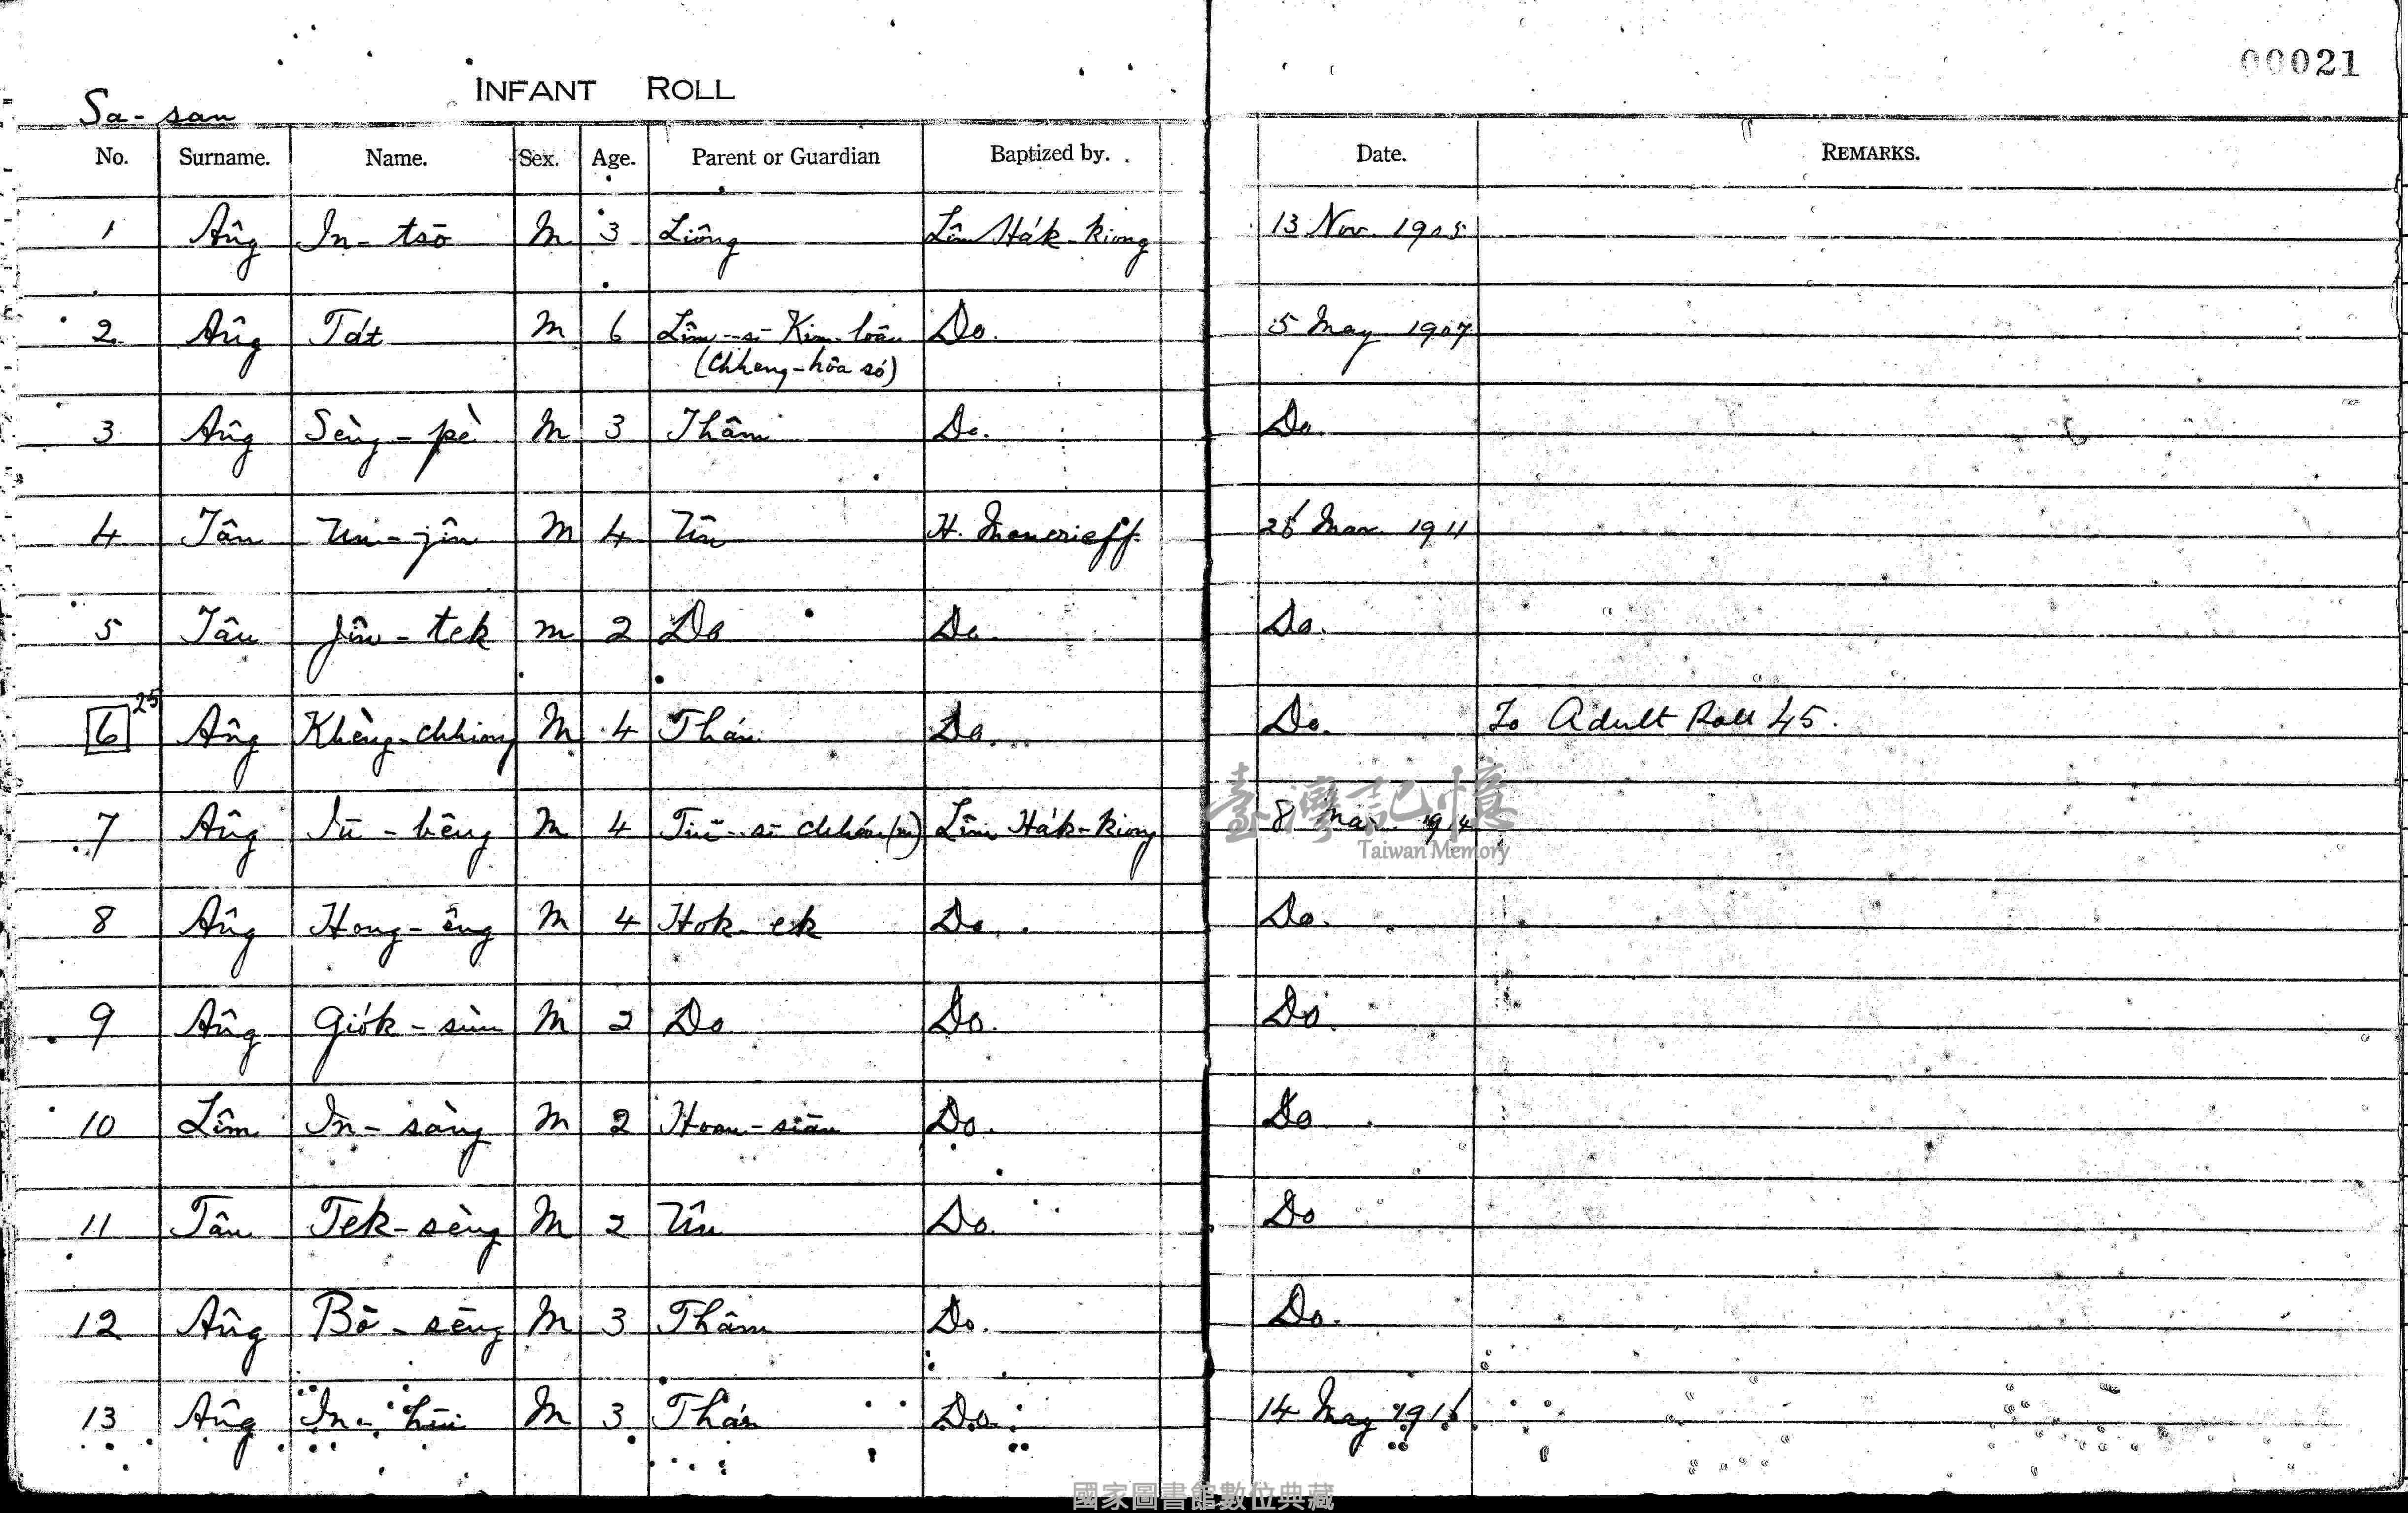 00021
INFANT ROLL
Sa-san
No. Surname. Name. Sex. Age. Parent or Guardian Baptized by. Date. REMARKS.
1 Âng In-tsō M 3 Liông Lîm Ha̍k-kiong 13 Nov. 1905
2 Âng Ta̍t M 6 Lîm-sī Kim-loân Do. 5 May 1907
(Chheng-hôa só)
3 Âng Sèng-pè M 3 Thâm Do. Do
4 Tân Un-jîn M 4 Ûn H. Moncrieff 26 Mar. 1911
5 Tân Jîn-tek M 2 Do Do. Do.
25
6 Âng Khèng-chhiong M 4 Thán Do. Do. To Adult Roll 45.
7 Âng Iū-bêng M 4 Lîm Ha̍k-kiong 8 Mar. 1914
臺灣記憶
Taiwan Memory
8 Âng Hong-êng M 4 Hok-ek Do. Do.
9 Âng Gio̍k-sùn M 2 Do Do. Do.
10 Lîm In-sàng M 2 Hoan-siān Do. Do
11 Tân Tek-sèng M 2 Ûn Do. Do
12 Âng Bō-sēng M 3 Thâm Do. Do.
13 Âng In-hūi M 3 Thán Do. 14 May 1916
國家圖書館數位典藏